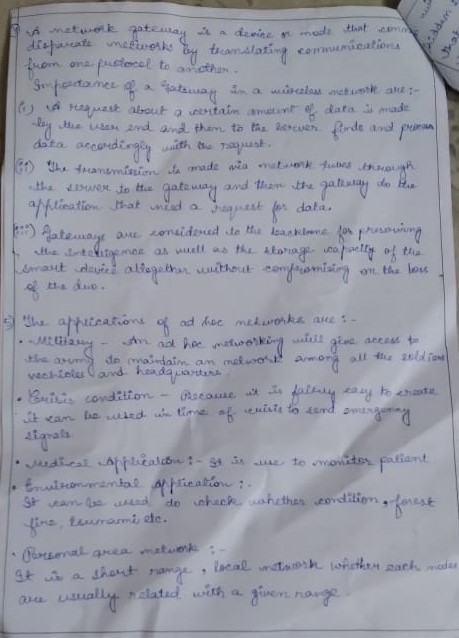 4) A network gateway is a device or node that conn
disparate networks by translating communications
from one protocol to another.
Importance of a gateway in a wireless network are :-
(i) A request about a certain amount of data is made
by the user end and then to the server finds and process
data accordingly with the request.
(ii) The transmission is made via network tubes through
the server to the gateway and then the gateway do the
application that need a request for data.
(iii) Gateways are considered to the backbone for preserving
the intelligence as well as the storage capacity of the
smart device altogether without compromising on the loss
of the duo.
5) The applications of ad hoc networks are :-
• Military - An ad hoc networking will give access to
the army to maintain an network among all the soldiers
vechicles and headquarters.
• Crisis condition - Because it is fairly easy to create
it can be used in time of crisis to send emergency
signals
• Medical Application :- It is use to monitor patient
• Environmental Application :-
It can be used do check whether condition, forest
fire, tsunami etc.
• Personal area network :-
It is a short range, local network whether each nodes
are usually related with a given range.